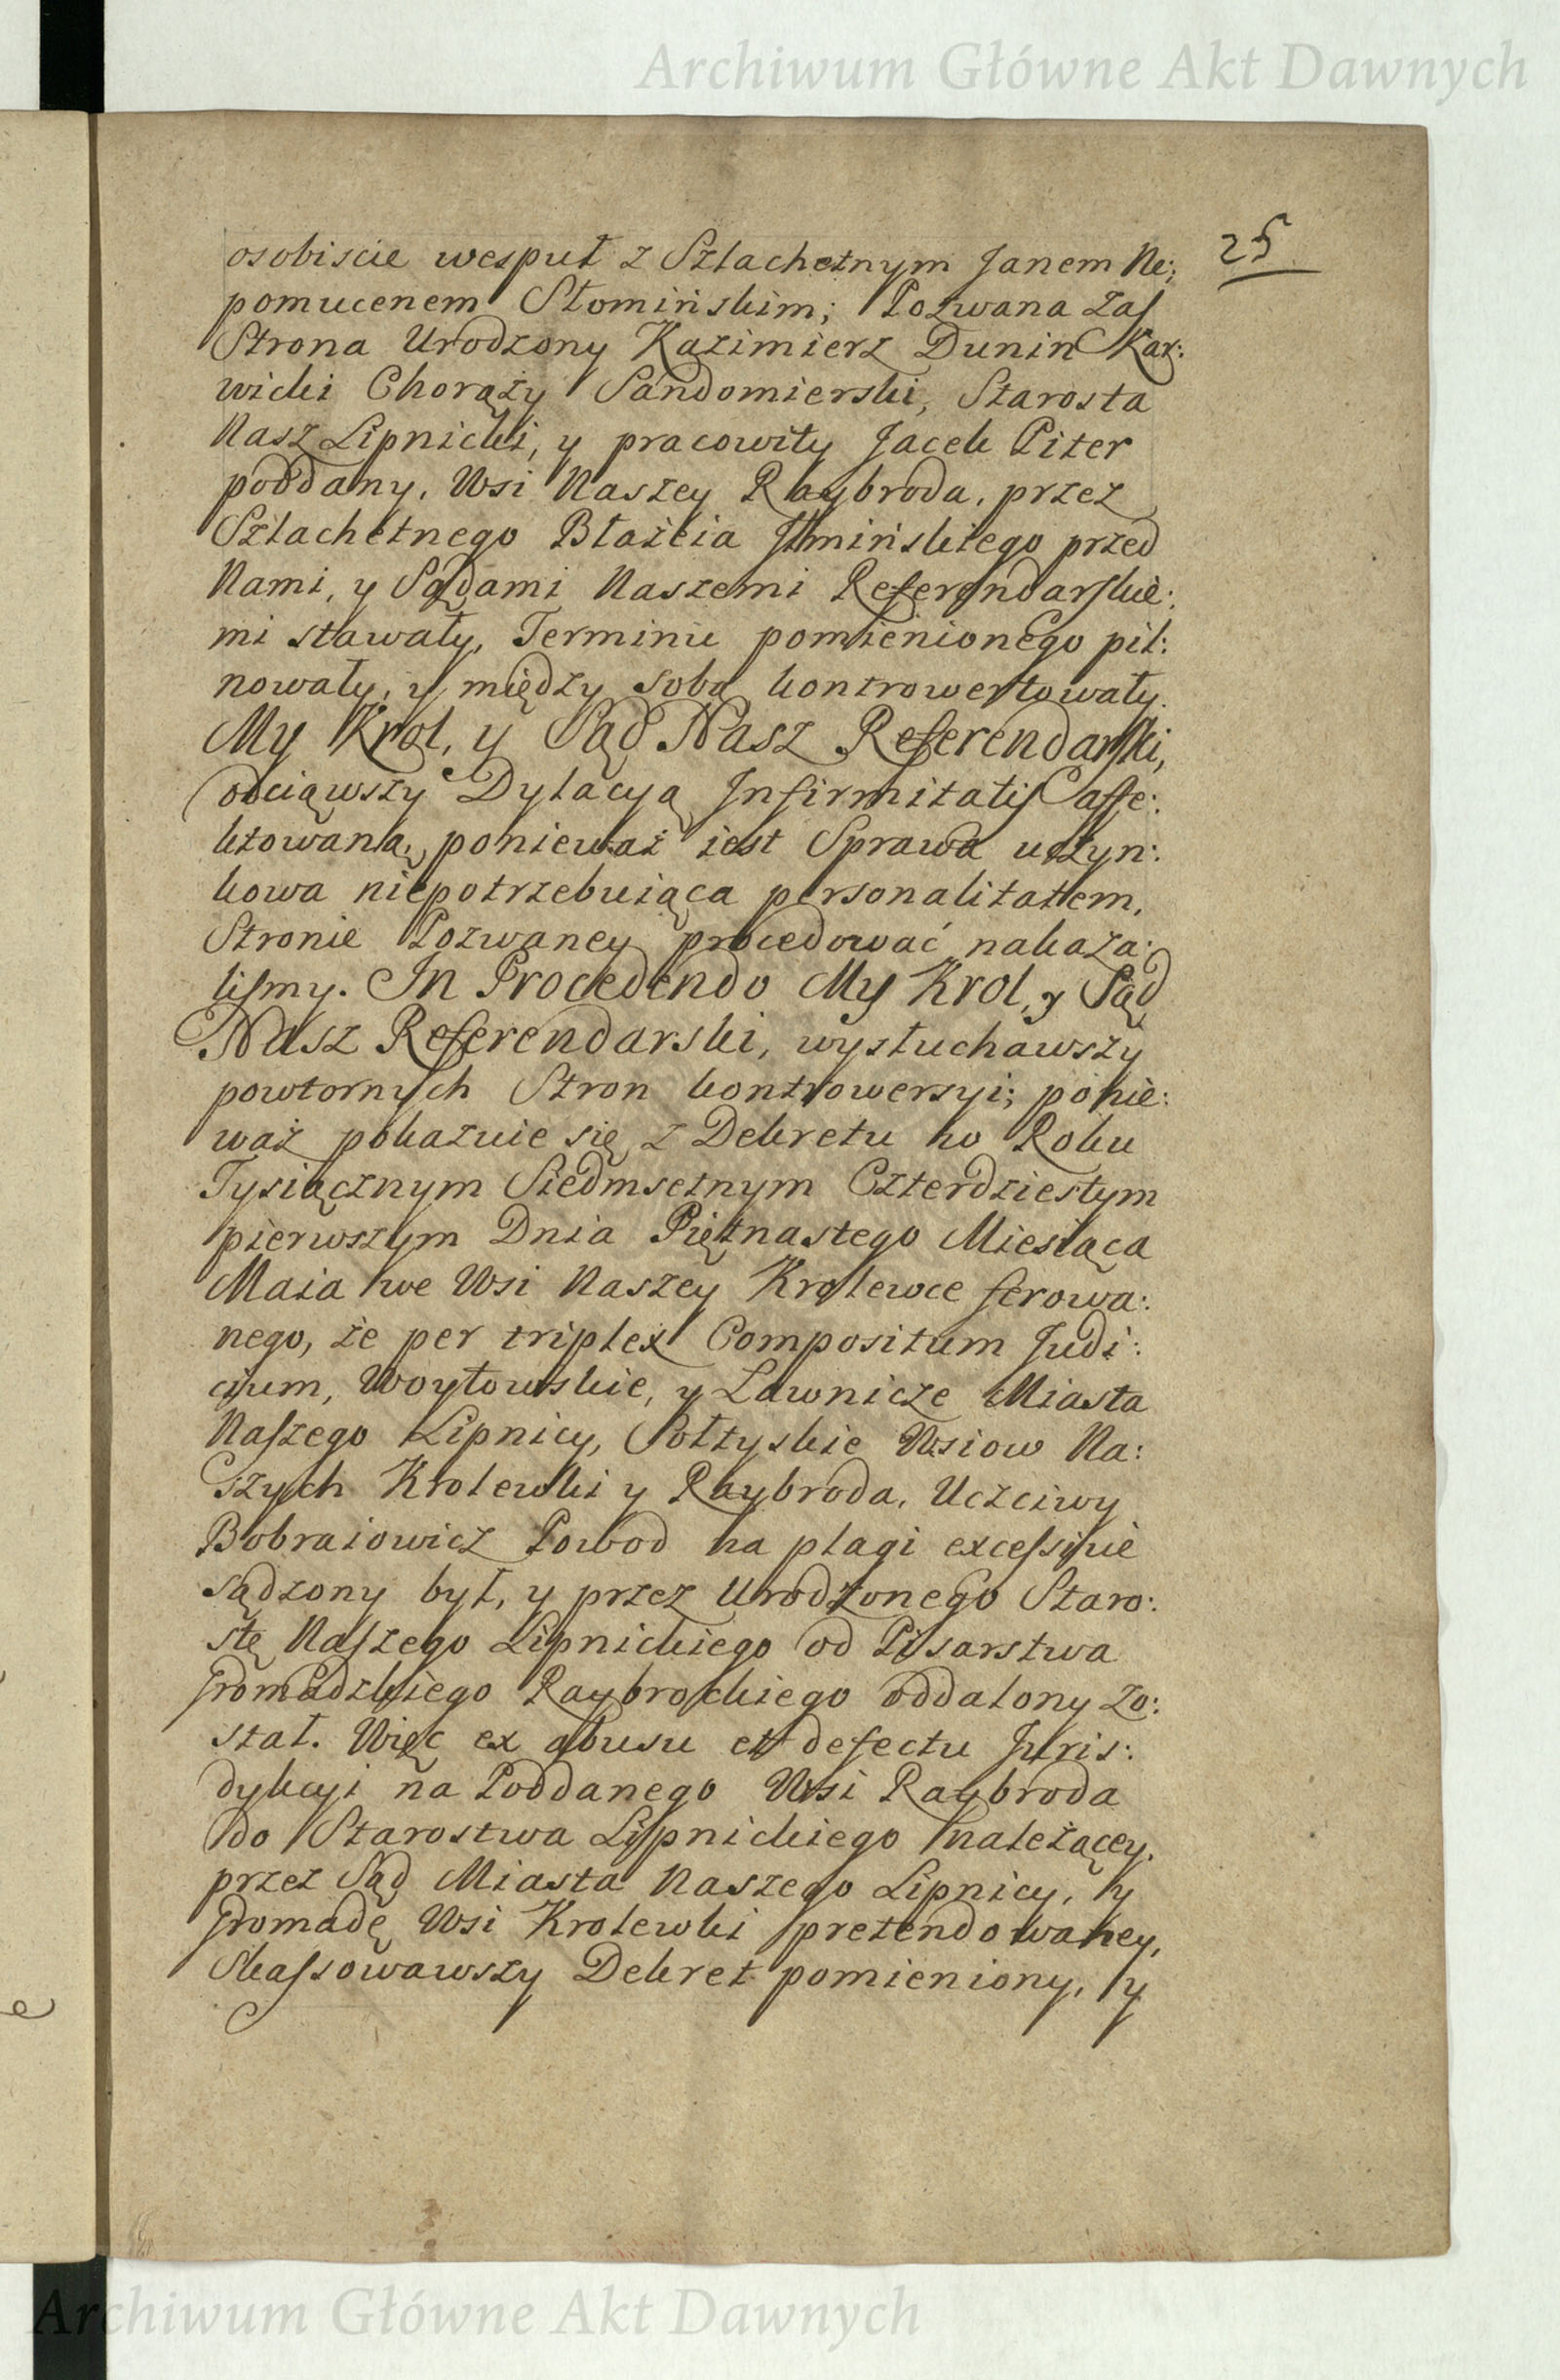 Archiwum Główne Akt Dawnych
25
osobiscie wesput z Szlachetnym Janem Ne:
pomucenem Słomińskim; Pozwana zas
Strona Urodzony Kazimierz Dunin Kar:
wicki Chorąży Sandomierski, Starosta
Nasz Lipnicki, y pracowity Jacek Piter
poddany, Wsi Naszey Raybroda, przez
Szlachetnego Błażeia Jłmińskiego przed
Nami, y Sądami Naszemi Referendarskie:
mi stawały, Terminu pomienionego pil:
nowały, y między sobą kontrowertowały.
My Krol, y Sąd Nasz Referendarski,
odciąwszy Dylacyą Infirmitatis affe:
ktowaną, ponieważ iest Sprawa uczyn:
kowa niepotrzebuiąca personalitatem,
Stronie Pozwaney procedować nakaza:
lismy. In Procedendo My Krol, y Sąd
Nasz Referendarski, wysłuchawszy
powtornych Stron kontrowersyi; ponie:
waż pokazuie się z Dekretu w Roku
Tysiącznym Siedmsetnym Czterdziestym
pierwszym Dnia Piętnastego Miesiąca
Maia we Wsi Naszey Krolewce ferowa:
nego, że per triplex Compositum Judi:
cium, Woytowskie, y Ławnicze Miasta
Naszego Lipnicy, Sołtyskie Wsiow Na:
szych Krolewki y Raybroda, Uczciwy
Bobraiowicz Powod na plagi excessive
sądzony był, y przez Urodzonego Staro:
stę Naszego Lipnickiego od Pisarstwa
Gromadzkiego Raybrockiego oddalony zo:
stał. Więc ex abusu et defectu Juris:
dykcyi na Poddanego Wsi Raybroda
do Starostwa Lipnickiego należącey,
przez Sąd Miasta Naszego Lipnicy, y
Gromadę Wsi Krolewki pretendowaney,
Skassowawszy Dekret pomieniony, y
Archiwum Główne Akt Dawnych